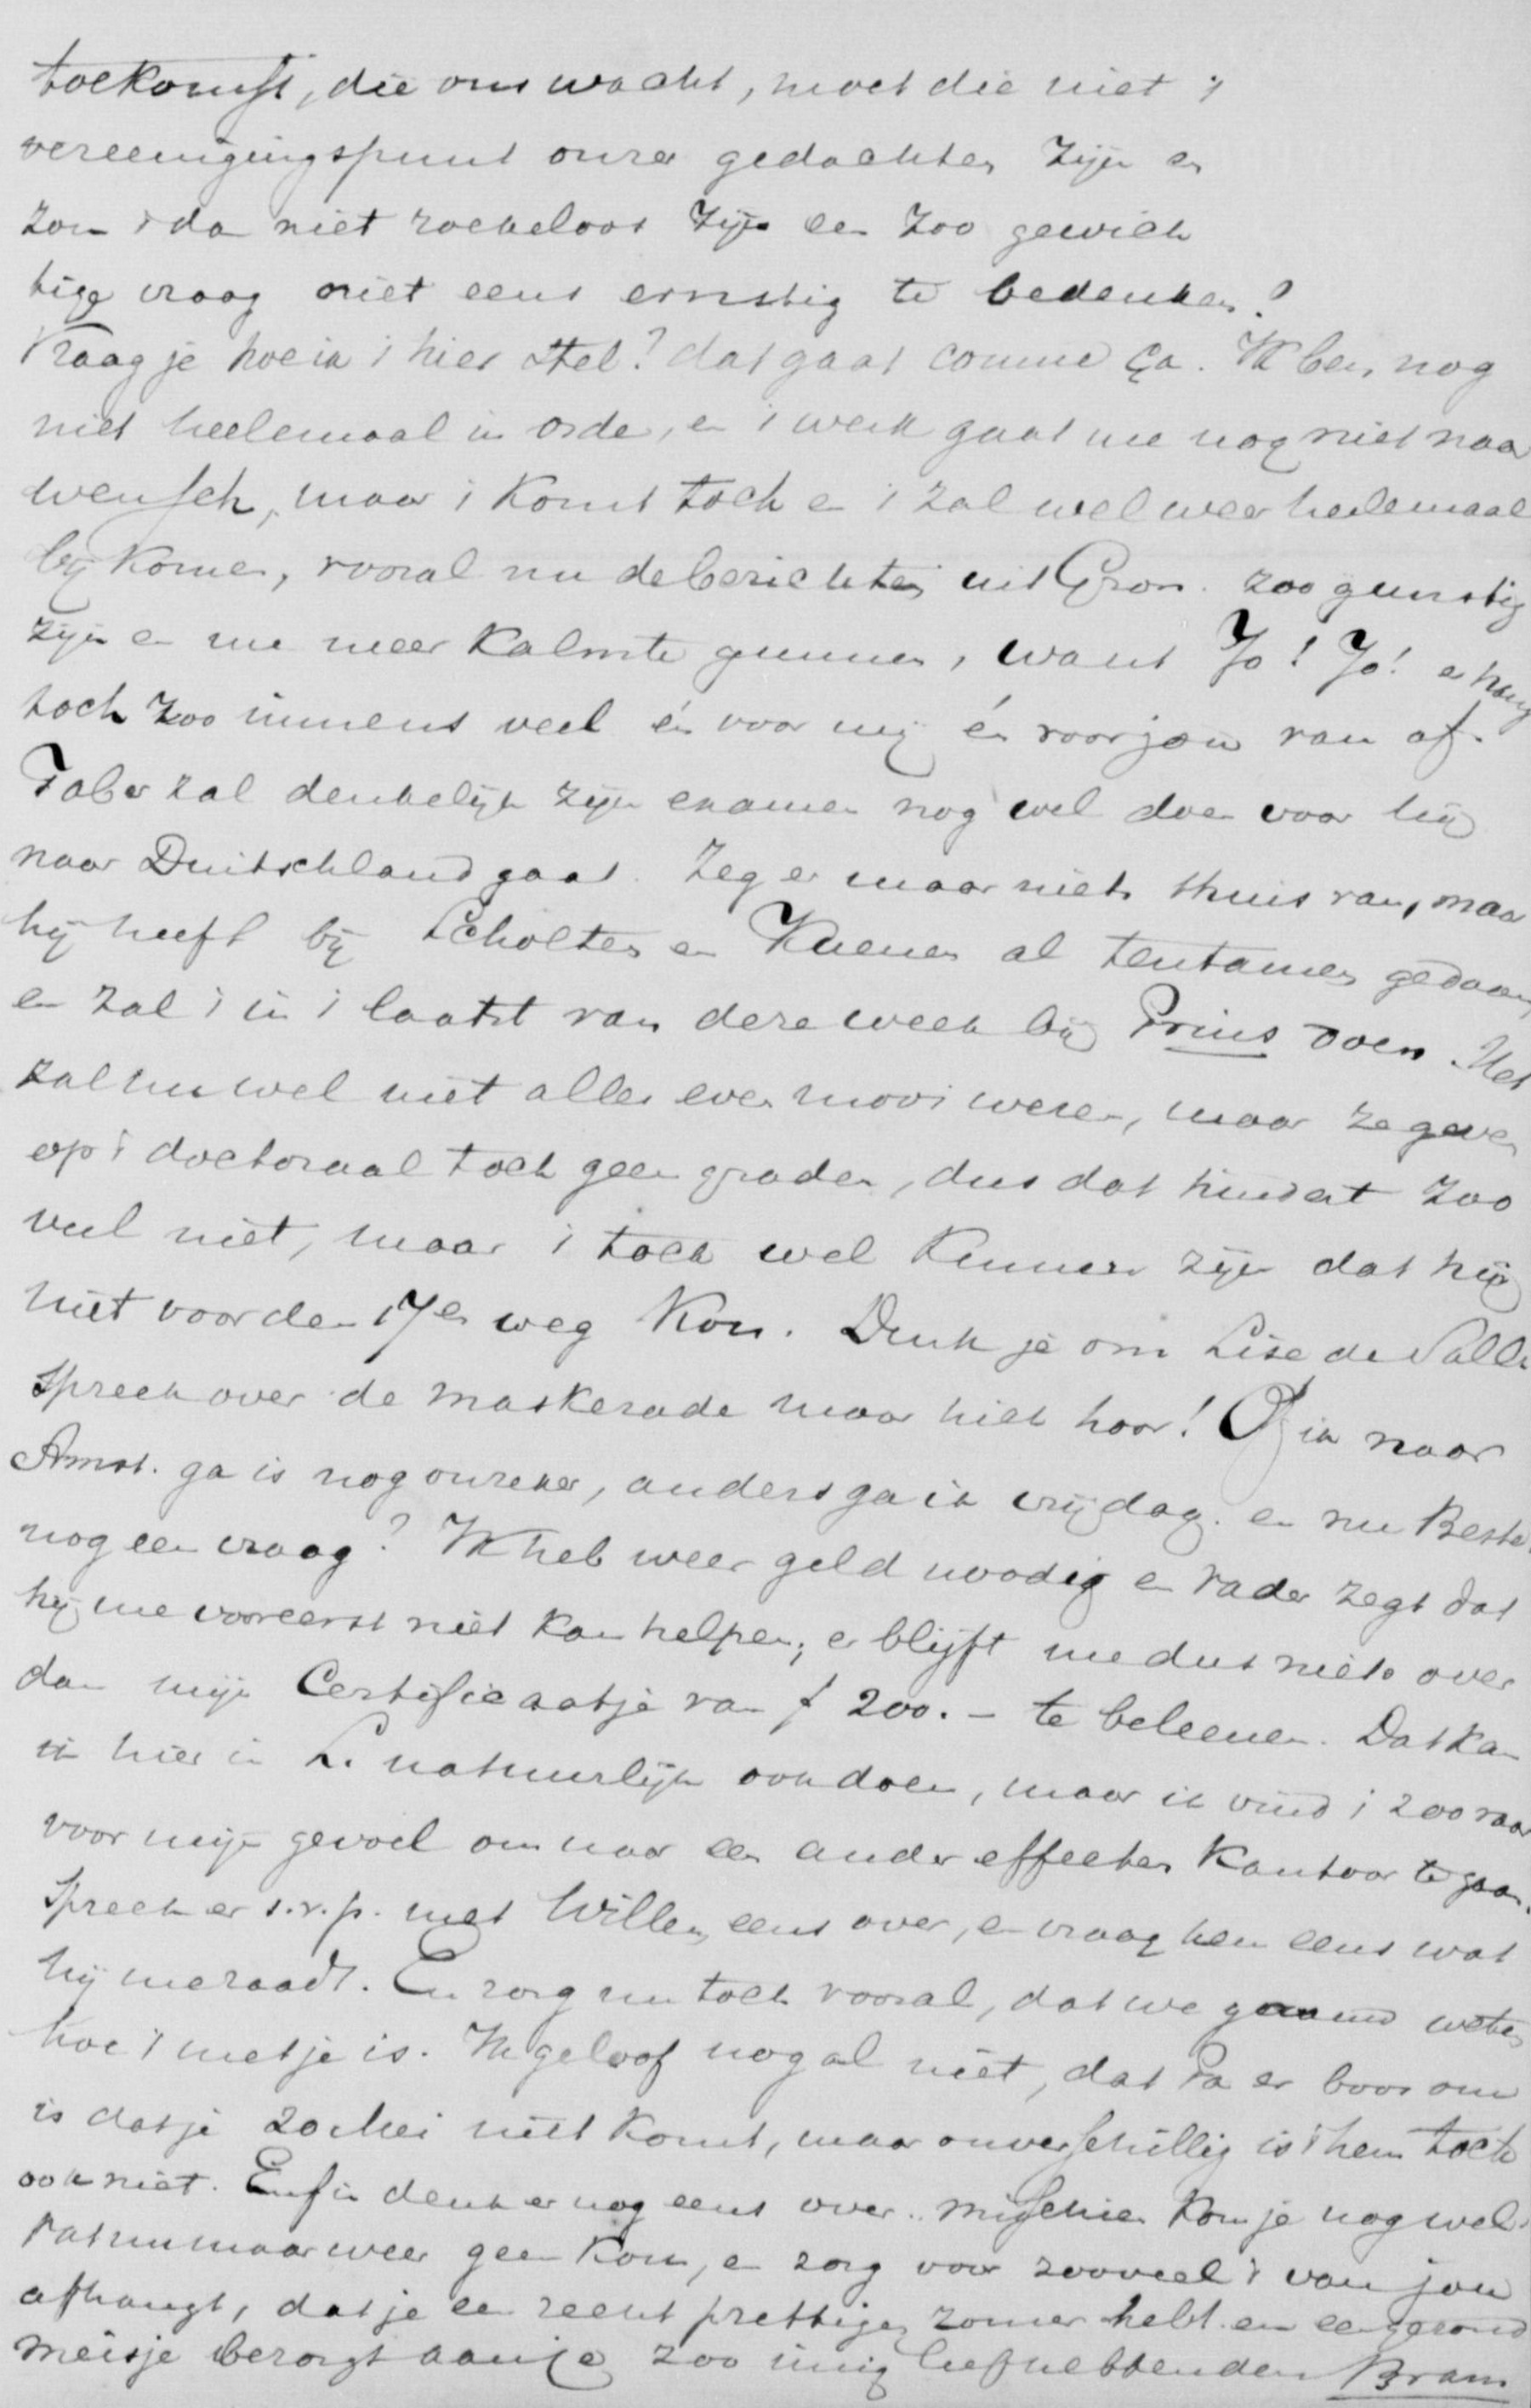 toekomst, die ons wacht, moet die niet 't
vereenigingspunt onzer gedachten zijn en
zou 't dan niet roekeloos zijn een zoo gewich
tige vraag niet eens ernstig te bedenken?
Vraag je hoe ik 't hier stel? dat gaat comme ça. Ik ben nog
niet heelemaal in orde, en 't werk gaat me nog niet naar
wensch, maar 't komt toch en 't zal wel weer heelemaal
bij komen, vooral nu de berichten uit Gron. zoo gunstig
zijn en me meer kalmte gunnen, want Jo! Jo! er hang
toch zoo immens veel én voor mij én voor jou van af.
Faber zal denkelijk zijn examen nog wel doen voor hij
naar Duitschland gaat. Zeg er maar niets thuis van, maar
hij heeft bij Scholten en Kuenen al tentamen gedaan
en zal 't in 't laatst van deze week bij Prins doen. Het
zal nu wel niet alles even mooi wezen, maar ze geven
op 't doctoraal toch geen graden, dus dat hindert zoo
veel niet, maar 't toch wel kunnen zijn dat hij
niet voor den 17en weg kon. Denk je om Lise de Salle
Spreek over de maskerade maar niet hoor! Of ik naar
Amst. ga is nog onzeker, anders ga ik vrijdag. en nu Beste
nog een vraag? Ik heb weer geld noodig en vader zegt dat
hij me vooreerst niet kan helpen; er blijft me dus niets over
dan mijn Certificaatje van f 200.- te beleenen. Dat kan
ik hier in L. natuurlijk ook doen, maar ik vind 't zoo raar
voor mijn gevoel om naar een ander effecten kantoor te gaan.
Spreek er s.v.p. met Willem eens over, en vraag hem eens wat
hij me raadt. En zorg nu toch vooral, dat we gauw weten
hoe 't met je is. Ik geloof nog al niet, dat Pa er boos om
is dat je 20 Mei niet komt, maar onverschillig is 't hem toch
ook niet. Enfin denk er nog eens over. misschien kom je nog wel.
Vat nu maar weer geen kou, en zorg voor zooveel 't van jou
afhangt, dat je een recht prettigen zomer hebt en een gezond
meisje bezorgt aan je zoo innig liefhebbenden Bram